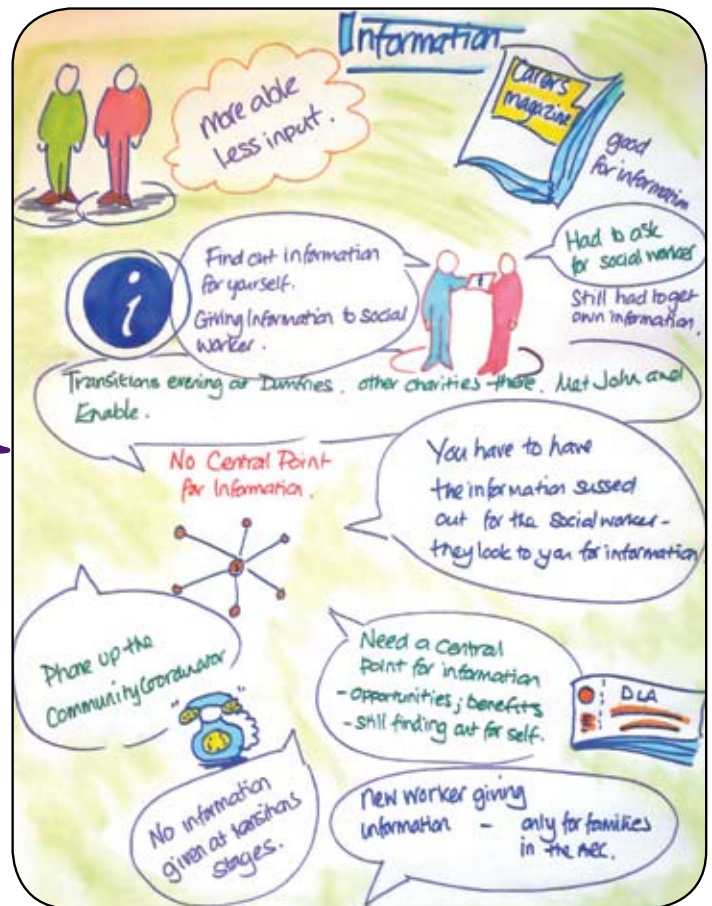 Information
More able
less input.
Carers
magazine
good
for information
Find out information
for yourself.
Giving Information to social
worker.
i
Had to ask
for social worker
Still had to get
own information.
Transitions evening at Dumfries. other charities there. Met John and
Enable.
No Central Point
for Information.
You have to have
the information sussed
out for the social worker -
they look to you for information
Phone up the
Community Coordinator
Need a central
point for information
- opportunities; benefits
- still finding out for self.
DLA
No information
given at transitions
stages.
new worker giving
information - only for families
in the